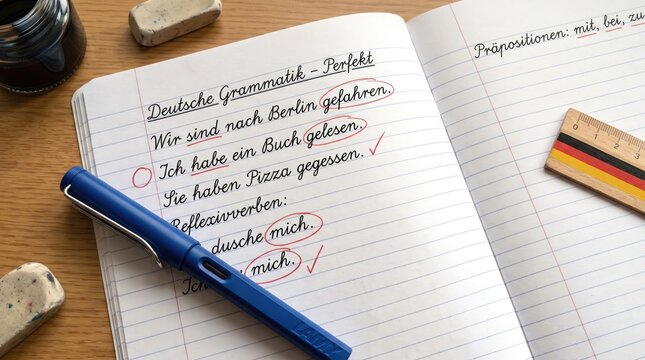 Deutsche Grammatik – Perfekt
Wir sind nach Berlin gefahren.
Ich habe ein Buch gelesen.
Sie haben Pizza gegessen.
Reflexivverben:
dusche mich.
Ich mich.
Präpositionen: mit, bei, zu
0 1 2 3
LAMY